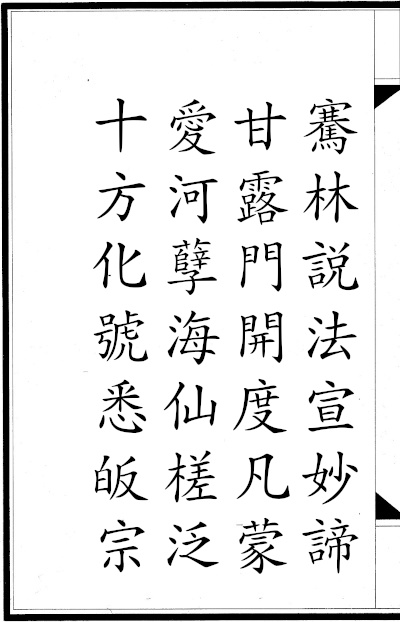 騫林説法宣妙諦
甘露門開度凡蒙
愛河孽海仙槎泛
十方化號悉皈宗